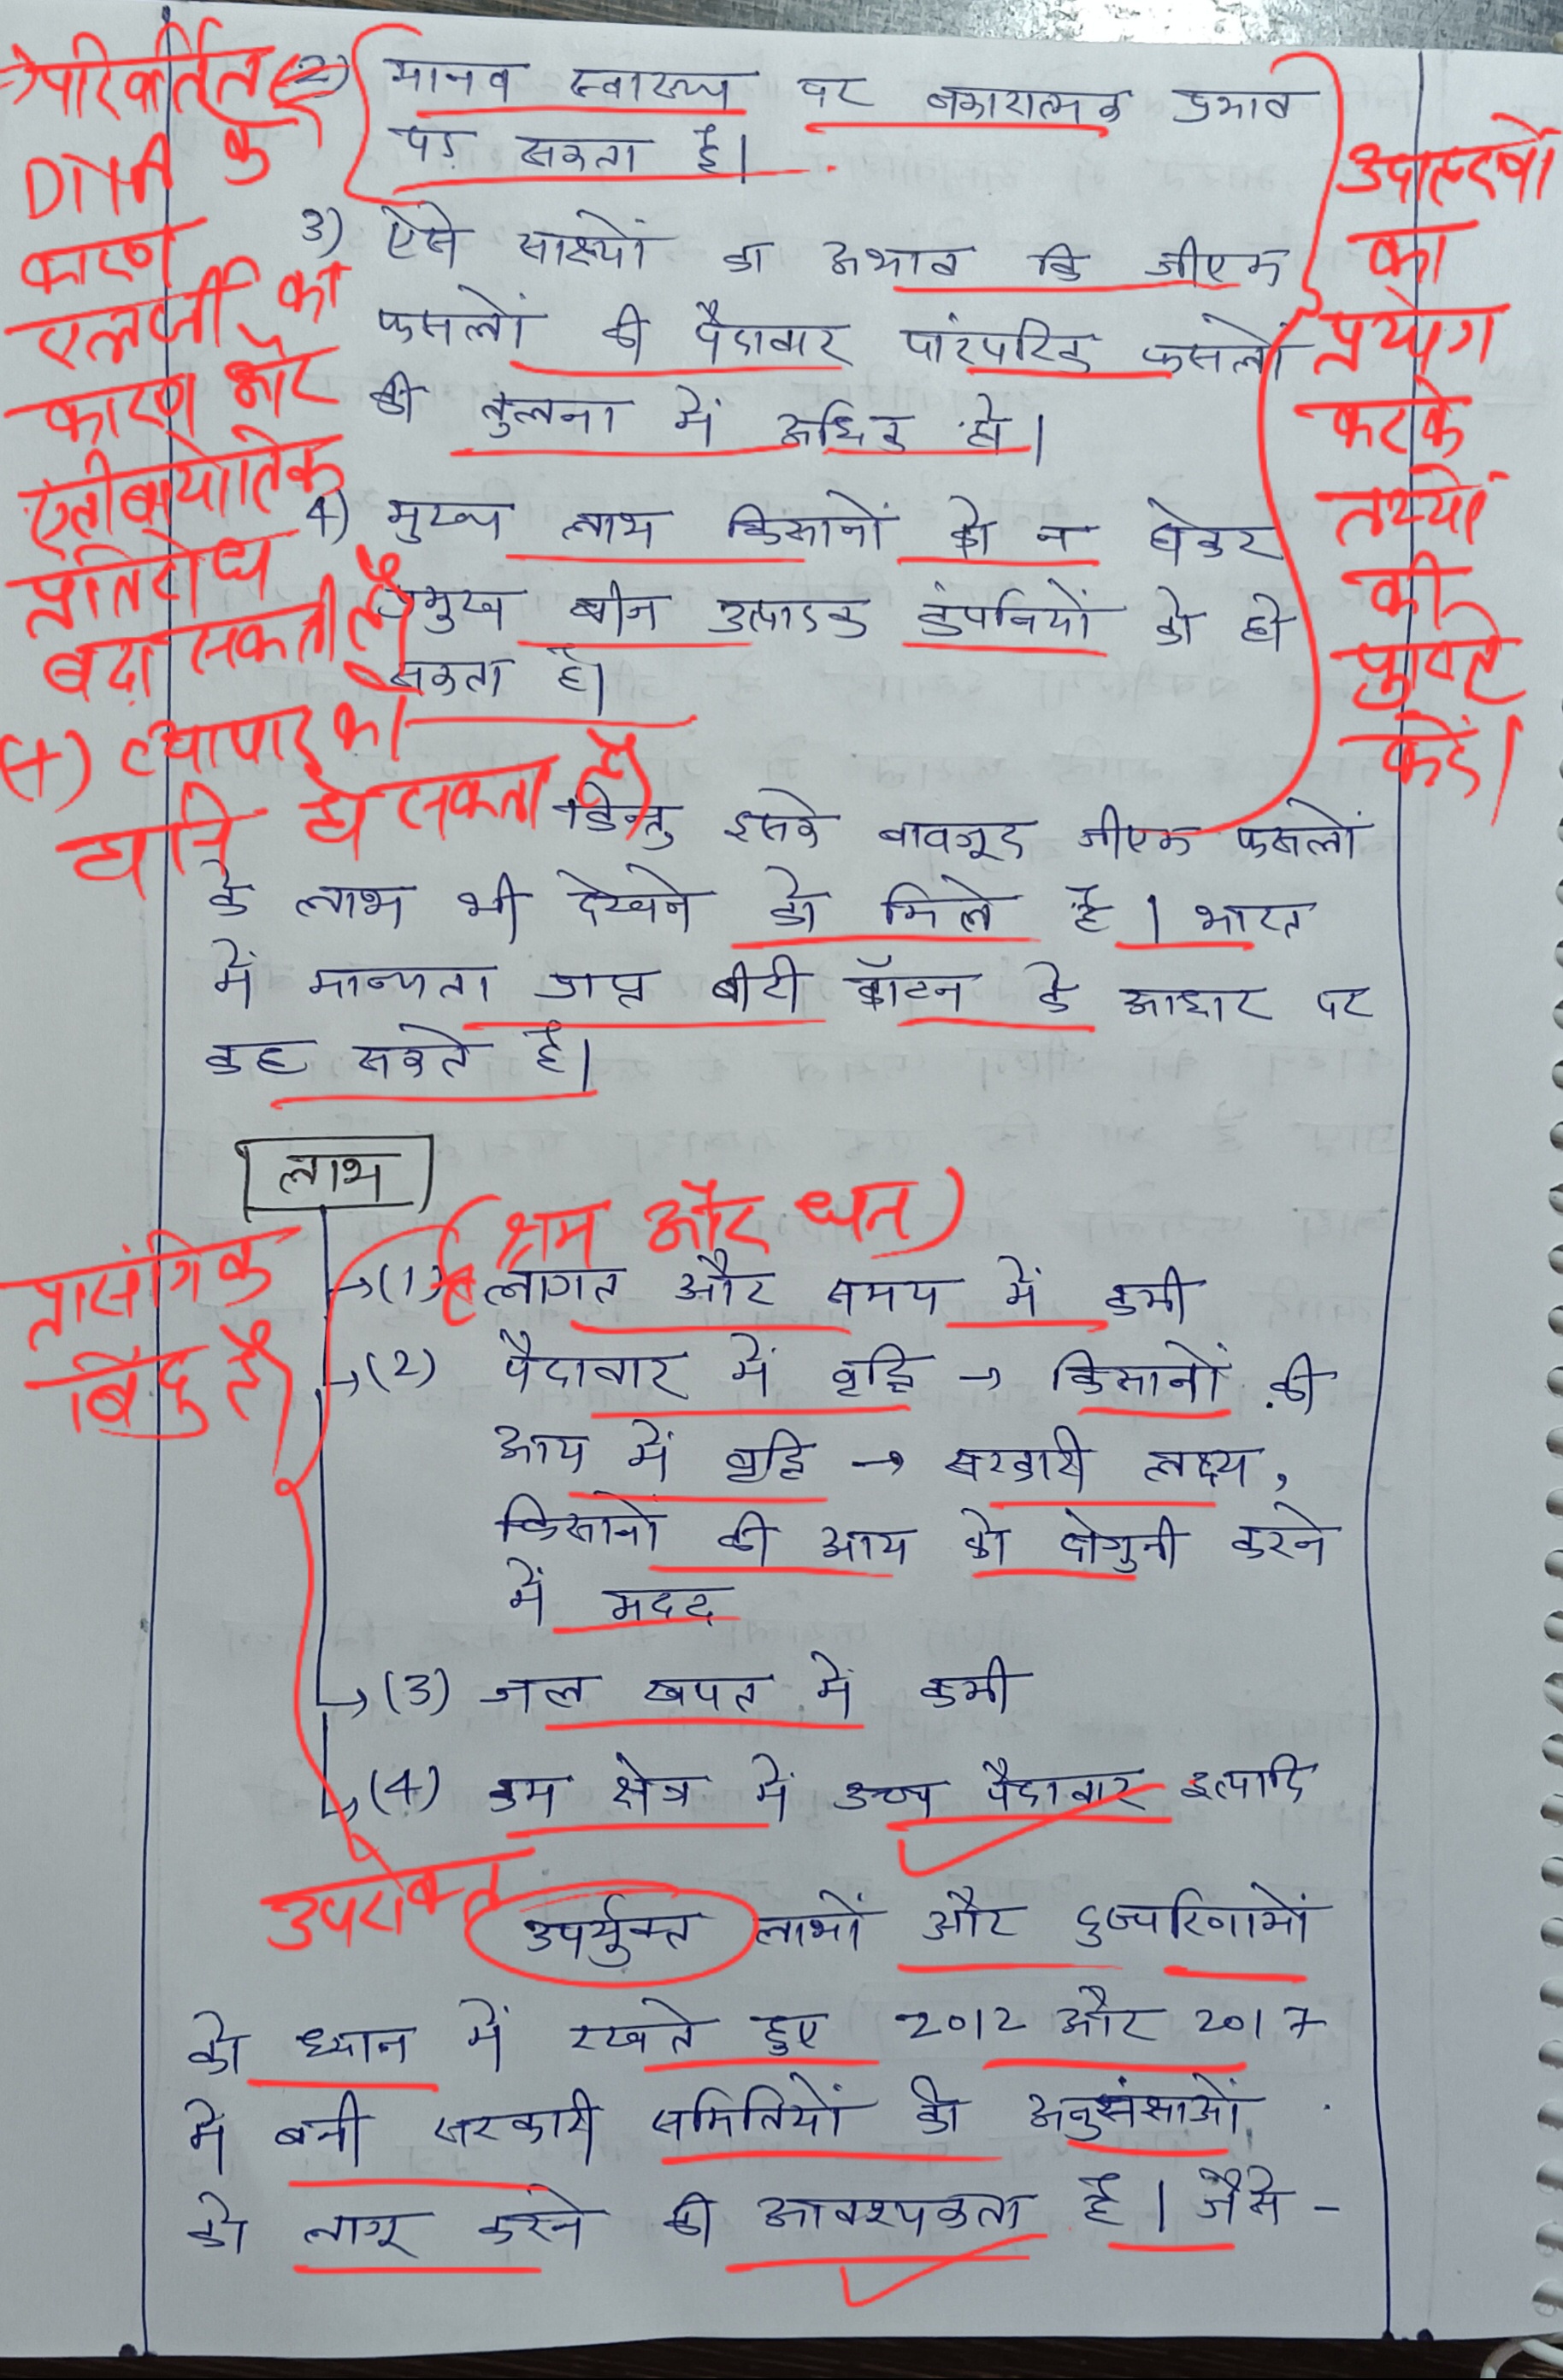 →परिवर्तित
DNA के
कारण
एलर्जी का
कारण और
एंटीबायोटिक
प्रतिरोध
बढ़ा सकती है
(+) व्यापार को
हानि हो सकता है
2) मानव स्वास्थ्य पर नकारात्मक प्रभाव
पड़ सकता है।
3) ऐसे साक्ष्यों का अभाव कि जीएम
फसलों की पैदावार पारंपरिक फसलों
की तुलना में अधिक हो।
4) मुख्य लाभ किसानों को न होकर
प्रमुख बीज उत्पादक कंपनियों को हो
सकता है।
उदाहरणों
का
प्रयोग
करके
तथ्यों
की
पुष्टि
करें।
किन्तु इसके बावजूद जीएम फसलों
के लाभ भी देखने को मिले है। भारत
में मान्यता प्राप्त बीटी कॉटन के आधार पर
कह सकते है।
लाभ
(श्रम और धन)
प्रासंगिक
बिंदु है
→(1) लागत और समय में कमी
→(2) पैदावार में वृद्धि → किसानों की
आय में वृद्धि → सरकारी लक्ष्य,
किसानों की आय को दोगुनी करने
में मदद
→(3) जल खपत में कमी
→(4) कम क्षेत्र में उच्च पैदावार इत्यादि
उपरोक्त
उपर्युक्त लाभों और दुष्परिणामों
को ध्यान में रखते हुए 2012 और 2017
में बनी सरकारी समितियों की अनुसंसाओं
को लागू करने की आवश्यकता है। जैसे -